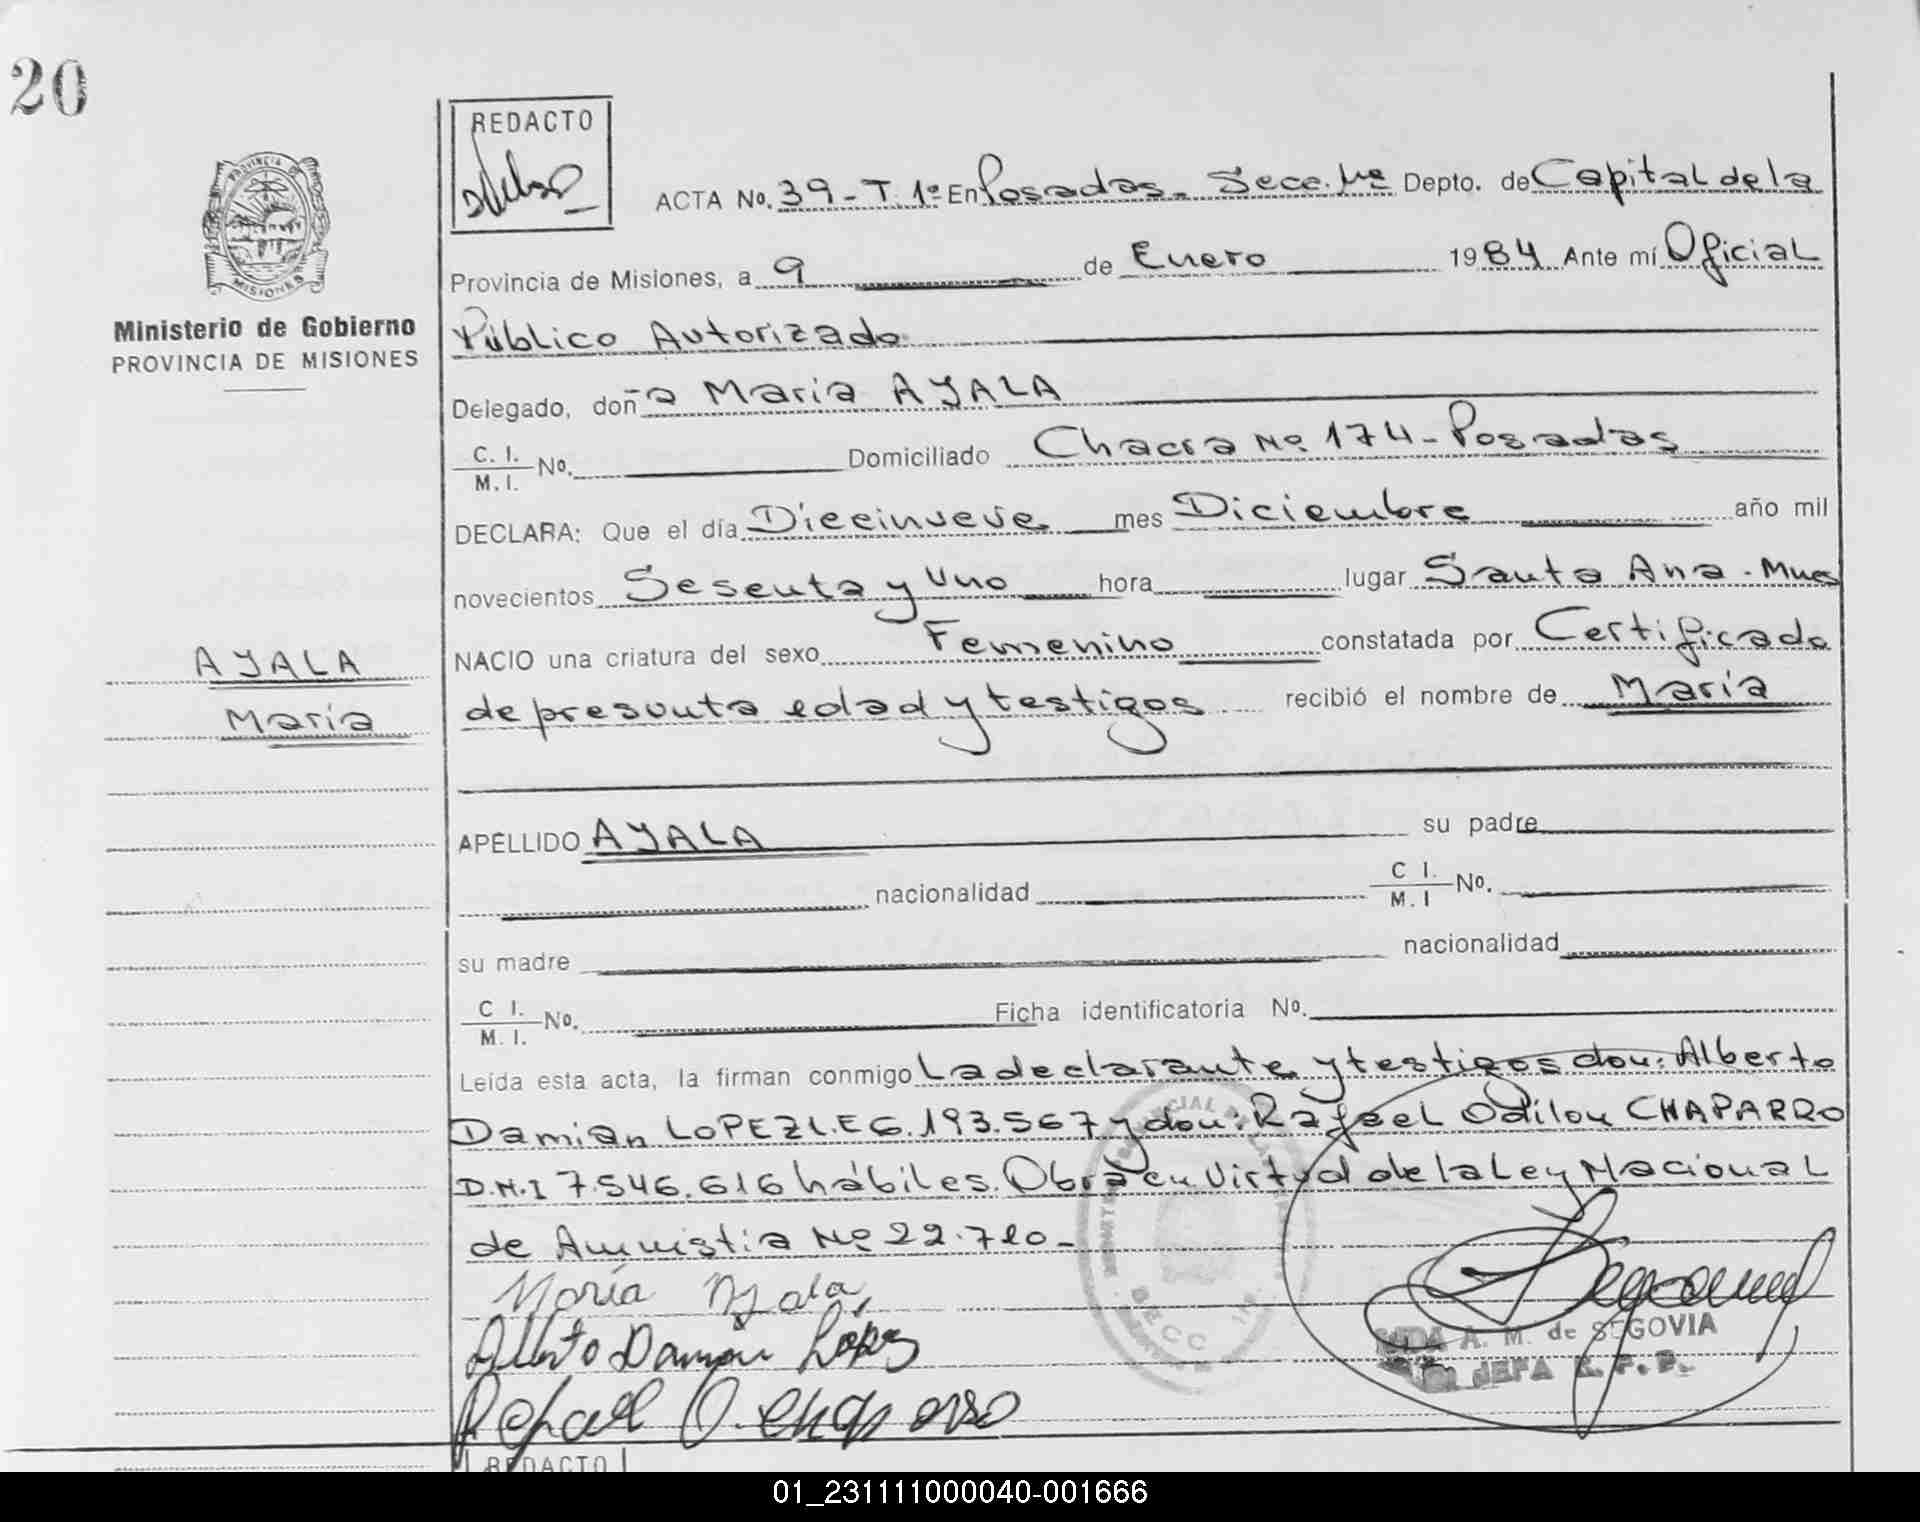 20
REDACTO
ACTA No. 39-T.1º En Posadas- Secc. 1ª Depto. de Capital de la
Provincia de Misiones, a 9 de Enero 1984 Ante mí Oficial
PROVINCIA DE
MISIONES
Ministerio de Gobierno
PROVINCIA DE MISIONES
Público Autorizado
Delegado, doñ-a Maria AYALA
C. I.
M. I. No. Domiciliado Chacra Nº 174-Posadas
DECLARA: Que el día Diecinueve mes Diciembre año mil
novecientos Sesenta y Uno hora lugar Santa Ana - Mnes
NACIO una criatura del sexo Femenino constatada por Certificado
AYALA
María
de presunta edad y testigos recibió el nombre de María
APELLIDO AYALA su padre
nacionalidad C I.
M. I No.
su madre nacionalidad
C I.
M. I. No. Ficha identificatoria No.
Leída esta acta, la firman conmigo La declarante y testigos don: Alberto
Damián LOPEZ L.E 6.193.567 y don: Rafael Odilon CHAPARRO
D.N.I 7.546.616 hábiles. Obra en virtud de la Ley Nacional
de Amnistia Nº 22.710-
María Ayala
Alberto Damián López
A. M. de SEGOVIA
JEFA
Rafael O. Chaparro
REDACTO
01_231111000040-001666